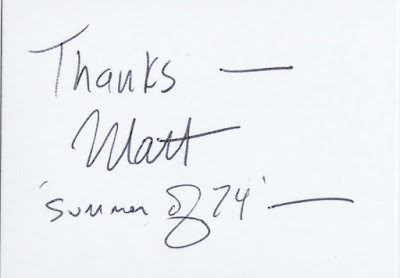 Thanks —
Matt
'Summer of 74' —